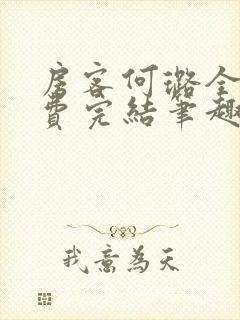 房客何璐全
費完結筆趣
我意為天